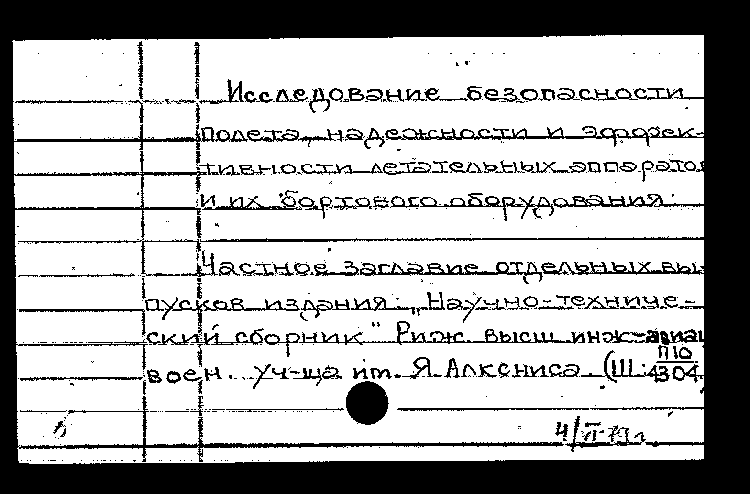 Исследование безопасности
полета, надежности и эффек-
тивности летательных аппаратов
и их бортового оборудования.
Частное заглавие отдельных вы-
пусков издания: „Научно-техниче-
ский сборник" Риж. высш инж-авиац
воен. уч-ща им. Я Алксниса. (Ш: П10
4304
4/VI-79г.